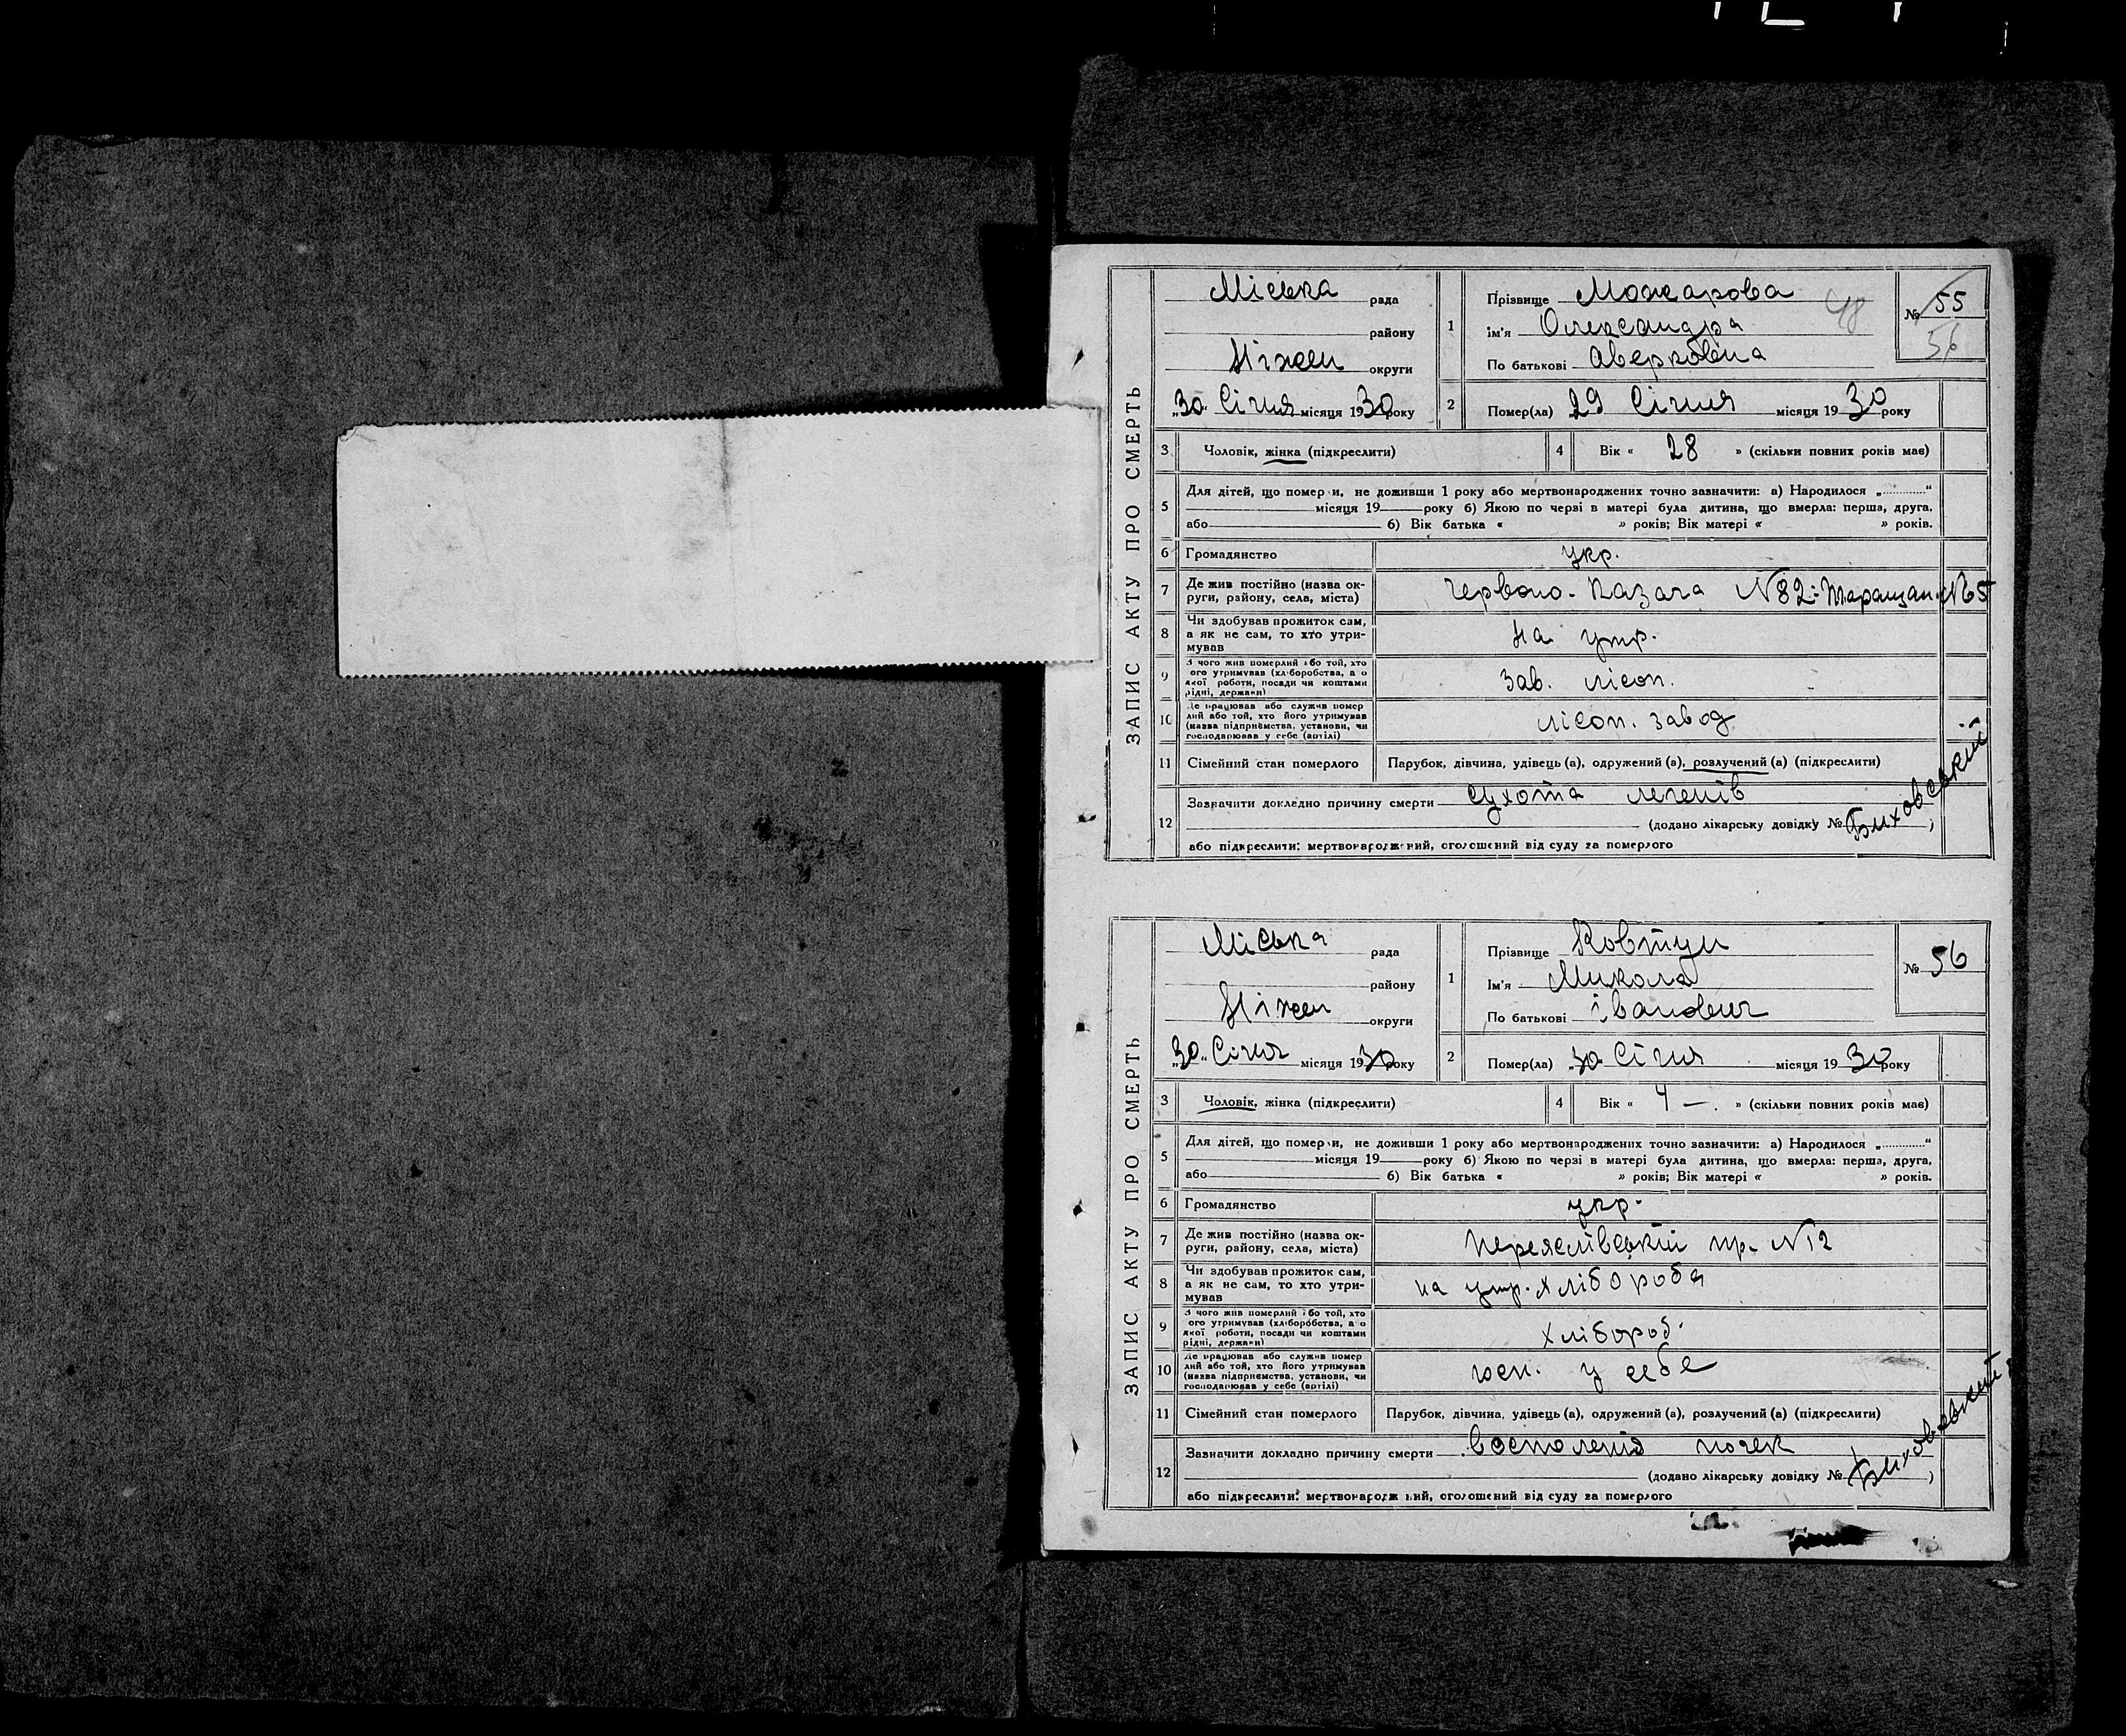 ЗАПИС АКТУ ПРО СМЕРТЬ
Міська рада
району
Ніжен округи
„30“ Січня місяця 1930 року
1 Прізвище Можарова
ім'я Олександра
По батькові Аверковна
48
№ 55
56
2 Помер(ла) 29 Січня місяця 1930 року
3 Чоловік, жінка (підкреслити)
4 Вік « 28 » (скільки повних років має)
5 Для дітей, що померли, не доживши 1 року або мертвонароджених точно зазначити: а) Народилося „............“
місяця 19 року б) Якою по черзі в матері була дитина, що вмерла: перша, друга,
або б) Вік батька « » років; Вік матері « » років.
6 Громадянство укр.
7 Де жив постійно (назва ок-
руги, району, села, міста) Червоно-Казача N82: Таращан. N65
8 Чи здобував прожиток сам,
а як не сам, то хто утри-
мував На утр.
9 З чого жив померлий або той, хто
ого утримував (хліборобства, а о
якої роботи, посади чи коштами
рідні, держави) Зав. лісоп.
10 Де працював або служив помер
лий або той, хто його утримував
(назва підприємства, установи, чи
господарював у себе (артілі) лісоп. завод
11 Сімейний стан померлого Парубок, дівчина, удівець (а), одружений (а), розлучений (а) (підкреслити)
12 Зазначити докладно причину смерти Сухота легенів
(додано лікарську довідку № Биховський)
або підкреслити: мертвонароджений, оголошений від суду за померлого
ЗАПИС АКТУ ПРО СМЕРТЬ
Міська рада
району
Ніжен округи
„30“ Січня місяця 1930 року
1 Прізвище Ковтун
Ім'я Микола
По батькові Іванович
№ 56
2 Помер(ла) 30 Січня місяця 1930 року
3 Чоловік, жінка (підкреслити)
4 Вік « 4 —. » (скільки повних років має)
5 Для дітей, що померли, не доживши 1 року або мертвонароджених точно зазначити: а) Народилося „............“
місяця 19 року б) Якою по черзі в матері була дитина, що вмерла: перша, друга,
або б) Вік батька « » років; Вік матері « » років.
6 Громадянство укр.
7 Де жив постійно (назва ок-
руги, району, села, міста) Переяслівський пр. N12
8 Чи здобував прожиток сам,
а як не сам, то хто утри-
мував на утр. хлібороба
9 З чого жив померлий або той, хто
ого утримував (хліборобства, а о
якої роботи, посади чи коштами
рідні, держави) хлібороб.
10 Де працював або служив помер
лий або той, хто його утримував
(назва підприємства, установи, чи
господарював у себе (артілі) госп. у себе
11 Сімейний стан померлого Парубок, дівчина, удівець (а), одружений (а), розлучений (а) (підкреслити)
12 Зазначити докладно причину смерти воспаления почек
(додано лікарську довідку № Биховський)
або підкреслити: мертвонароджений, оголошений від суду за померлого